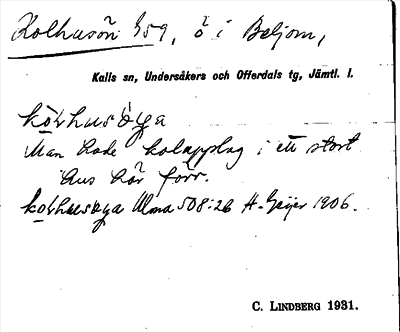 Kolhusön 859, ö i Beljom,
Kalls sn, Undersåkers och Offerdals tg, Jämtl. l.
kolhusöya
Man hade kolupplag i ett stort
hus här förr.
kolhusöya Ulma 508:26 H. Geijer 1906.
C. LINDBERG 1931.